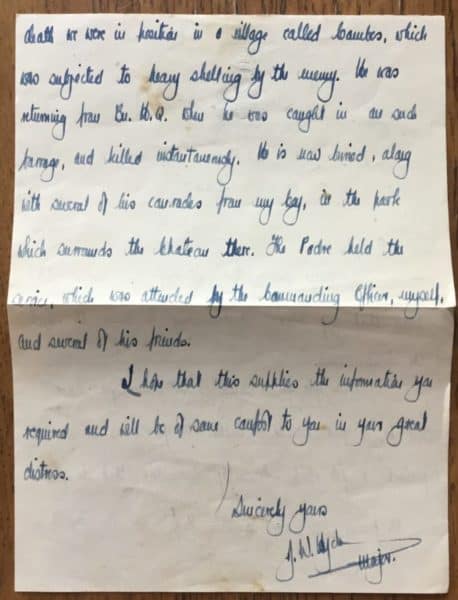 death we were in position in a village called Cambes, which
was subjected to heavy shelling by the enemy. He was
returning from Bn. H.Q. when he was caught in one such
barrage, and killed instantaneously. He is now buried, along
with several of his comrades from my Coy, in the park
which surrounds the Chateau there. The Padre held the
service, which was attended by the Commanding Officer, myself,
and several of his friends.
I hope that this supplies the information you
required and will be of some comfort to you in your great
distress.
Sincerely yours
J. W.
Major.